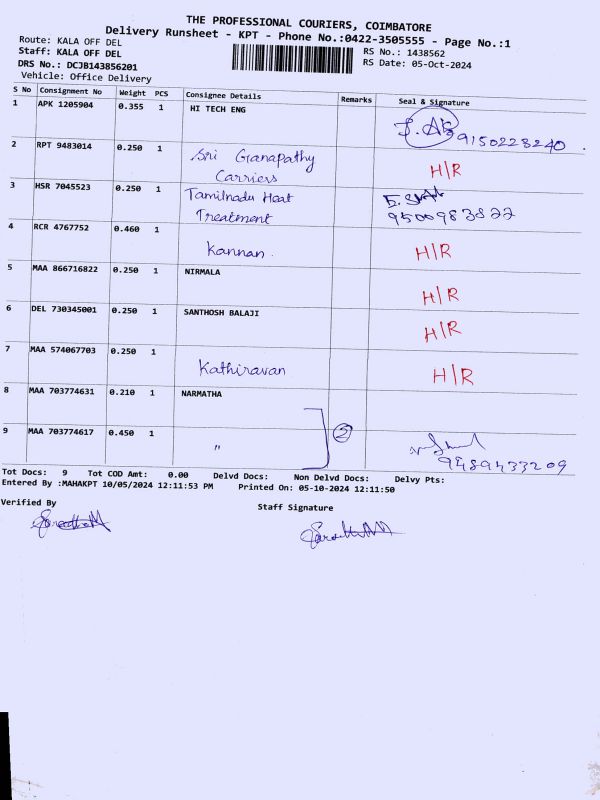 THE PROFESSIONAL COURIERS, COIMBATORE
Delivery Runsheet - KPT - Phone No.:0422-3505555 - Page No.:1
Route: KALA OFF DEL
RS No.: 1438562
Staff: KALA OFF DEL
RS Date: 05-Oct-2024
DRS No.: DCJB143856201
Vehicle: Office Delivery
S No Consignment No Weight PCS Consignee Details Remarks Seal & Signature
1 APK 1205904 0.355 1 HI TECH ENG 9150228240
2 RPT 9483014 0.250 1 Sri Ganapathy Carriers H/R
3 HSR 7045523 0.250 1 Tamilnadu Heat Treatment 9500983822
4 RCR 4767752 0.460 1 Kannan. H/R
5 MAA 866716822 0.250 1 NIRMALA H/R
6 DEL 730345001 0.250 1 SANTHOSH BALAJI H/R
7 MAA 574067703 0.250 1 Kathiravan H/R
8 MAA 703774631 0.210 1 NARMATHA
9 MAA 703774617 0.450 1 " 2 9489433209
Tot Docs: 9 Tot COD Amt: 0.00 Delvd Docs: Non Delvd Docs: Delvy Pts:
Entered By :MAHAKPT 10/05/2024 12:11:53 PM Printed On: 05-10-2024 12:11:50
Verified By
Staff Signature